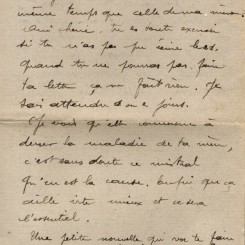 même temps que celle de ma
Ami chéri, tu es toute excusée
si tu n'as pas pu
quand tu ne pourras pas faire
ta lettre ça ne fait rien. Je
sais attendre 2 ou 3 jours.
Je vois qu'elle commence à
durer la maladie de ta mère,
c'est sans doute ce mistral
qu'en est la cause, enfin que ça
aille vite mieux et ce sera
l'essentiel.
Une petite nouvelle qui va te faire